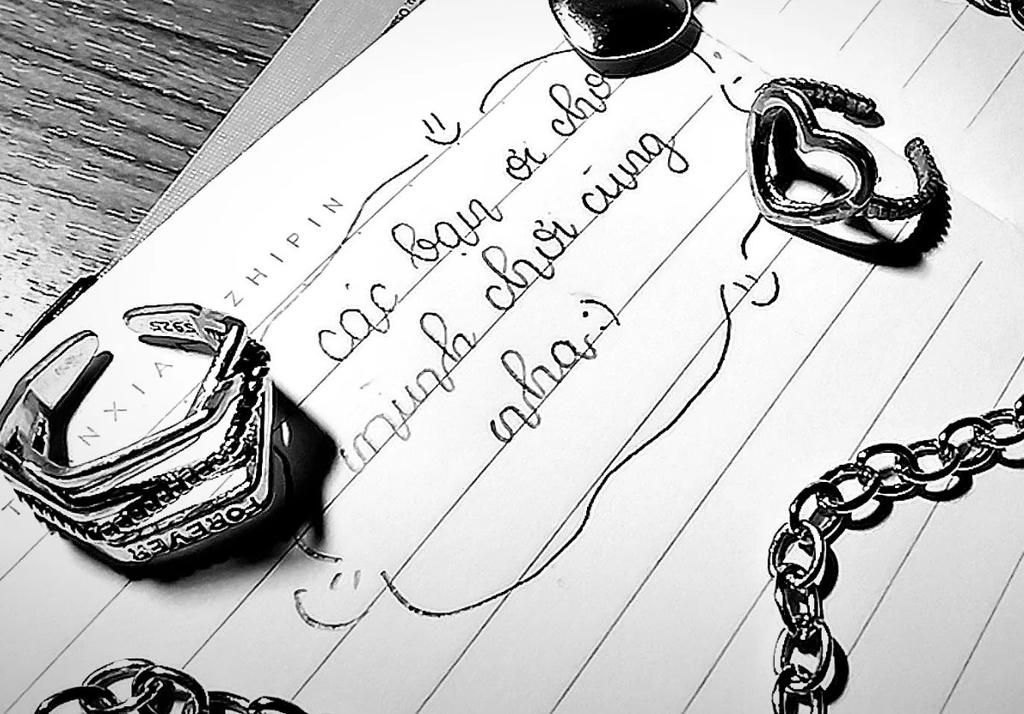 các bạn ơi cho
mình chơi cùng
nha:)
NXIA ZHIPIN
S925
FOREVER